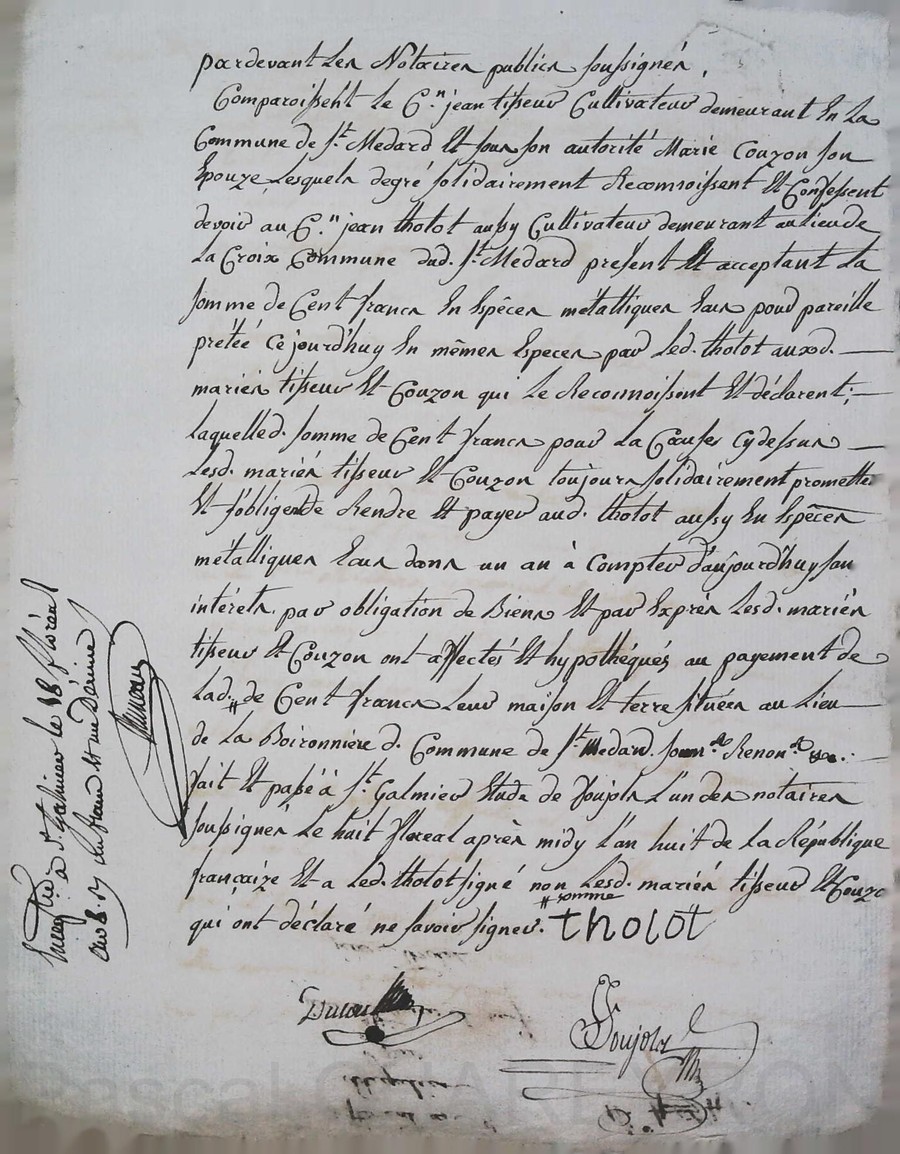 pardevant Les Notaires publics soussignés,
Comparoissent le C.en jean tisseur Cultivateur demeurant En La
Commune de S.t Medard Et sous son autorité Marie Couzon son
Epouze Lesquels degré solidairement Reconnoissent Et Confessent
devoir au C.en jean tholot aussy Cultivateur demeurant au lieu de
La Croix Commune dud. S.t Medard present Et acceptant La
somme de Cent francs En Espêces métalliques Eaus pour pareille
prétéé Cejourd'huy En mêmes Especes par Led. tholot auxd.
mariés tisseur Et Couzon qui Le Reconnoissent Et déclarent;
Laquelled. somme de Cent francs pour La Causes Cy dessus
Lesd. mariés tisseur Et Couzon toujours solidairement promettent
Et s'obligent de Rendre Et payer aud. tholot aussy En Espêces
métalliques Eaus dans un an à Compter d'aujourd'huy san
intérets. par obligation de Biens Et par Exprés Lesd. mariés
tisseur Et Couzon ont affectés Et hypothéqués au payement de
Lad. # de Cent francs Leur maison Et terre situées au Lieu
de La Boironniere d. Commune de S.t Medard. Renon.on
fait Et passé à S.t Galmier Etude de Poujols L'un des notaires
soussignés Le huit floreal après midy L'an huit de La République
françaize Et a Led. tholot signé non Lesd. mariés tisseur Et Couzo
# somme
qui ont déclaré ne savoir signer. tholot
Poujols
Enregistré à S.t Galmier le 18 floréal
an 8. un franc